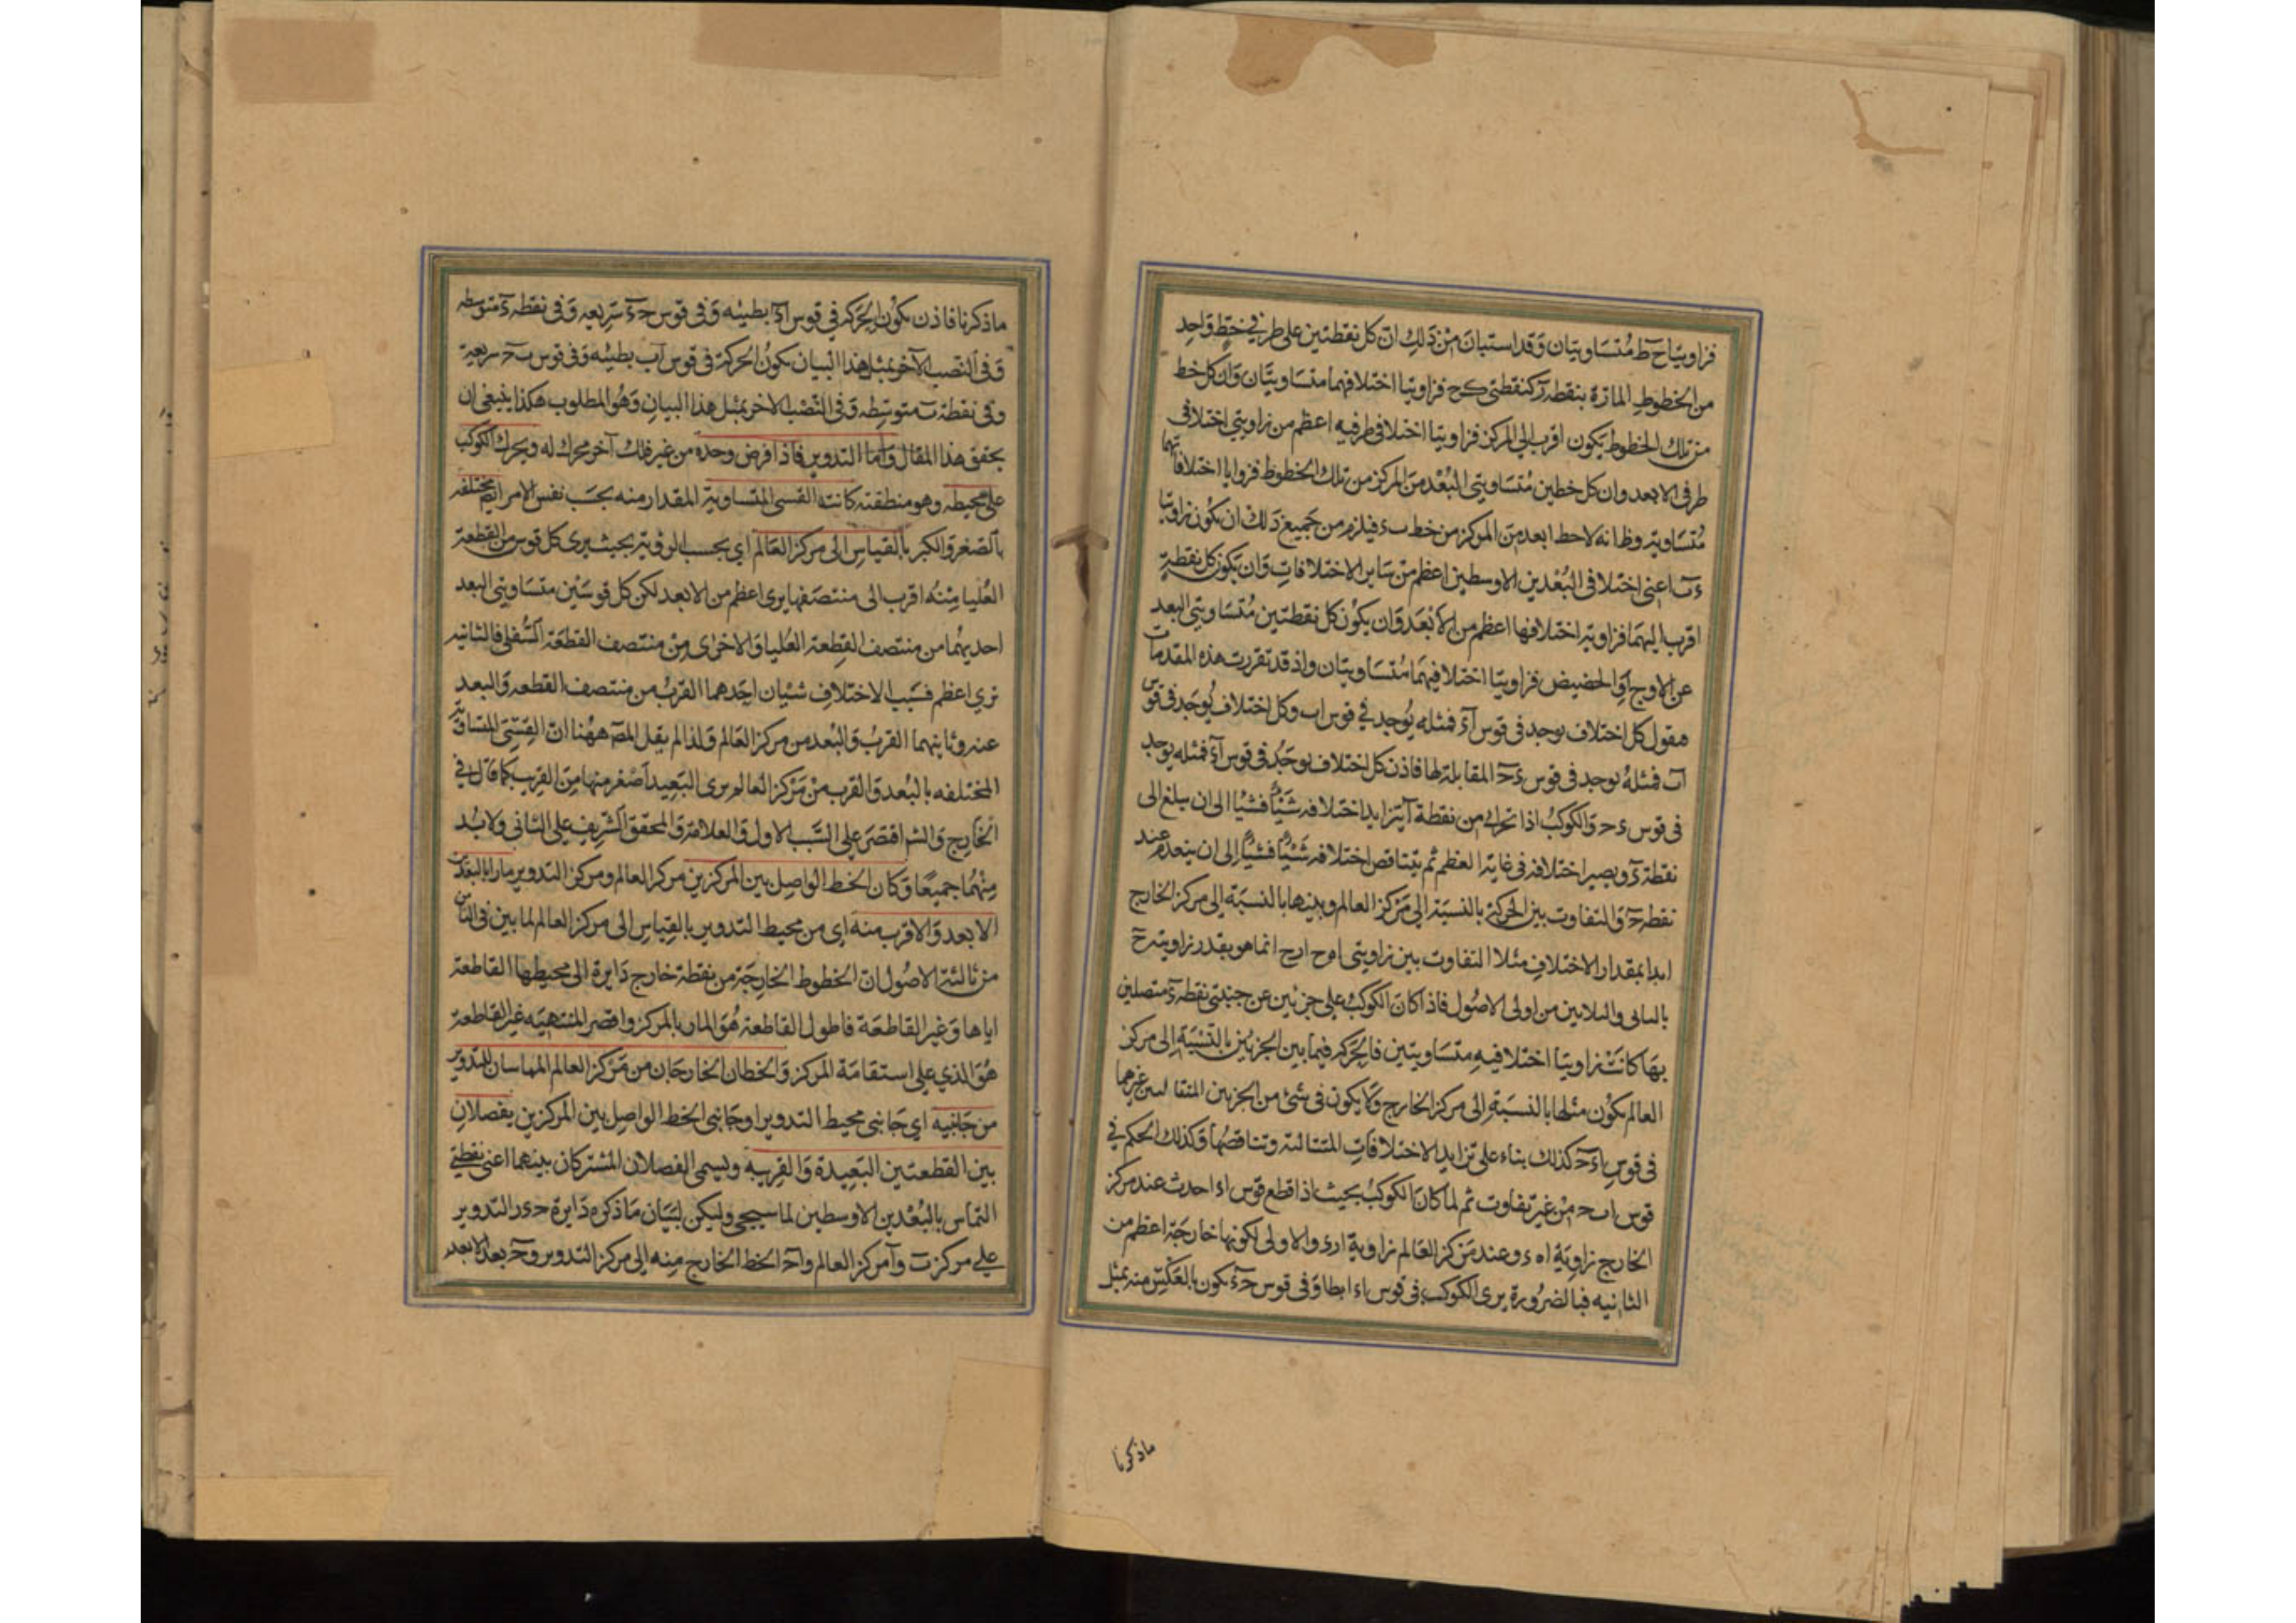 فزاويتاح ط متساويتان وقد استبان من ذلك ان كل نقطتين على طرفي خط واحد
من الخطوط المارة بنقطة ر كنقطتي ك ح فزاويتا اختلافهما متساويتان وان كل خط
من تلك الخطوط يكون اقرب الى المركز فزاويتا اختلاف طرفيه اعظم من زاويتي اختلاف
طرفى الابعد وان كل خطين متساويتى البعد من المركز من تلك الخطوط فزوايا اختلافاتهما
متساوية وظ انه لاحط ابعد من المركز من خط ب ء فيلزم من جميع ذلك ان يكون زاويتا
ء ب اعنى اختلافى البعدين الاوسطين اعظم من ساير الاختلافات وان يكون كل نقطة
اقرب اليهما فزاوية اختلافها اعظم من الابعد وان يكون كل نقطتين متساويتى البعد
عن الاوج او الحضيض فزاويتا اختلافيهما متساويتان واذ قد تقررت هذه المقدمات
فنقول كل اختلاف يوجد فى قوس آء فمثله يوجد في قوس اب وكل اختلاف يوجد فى قوس
اب فمثله يوجد فى قوس ءحَ المقابلة لها فاذن كل اختلاف يوجد فى قوس آء فمثله يوجد
فى قوس ءح والكوكب اذا تحرك من نقطة آ يتزايد اختلافه شيئا فشيئا الى ان يبلغ الى
نقطة ءَ ويصير اختلافه فى غاية العظم ثم يتناقص اختلافه شيئا فشيئا الى ان ينعدم عند
نقطة حَ والتفاوت بين الحركة بالنسبة الى مركز العالم وبينها بالنسبة الى مركز الخارج
ابدا بمقدار الاختلاف مثلا التفاوت بين زاويتى اه ح ارح انما هو بقدر زاوية حَ
بالثانى والثلاثين من اولى الاصول فاذا كان الكوكب على جزئين عن جنبتى نقطة ءَ متصلين
بها كانت زاويتا اختلافيه متساويتين فالحركة فيما بين الجزئين بالنسبة الى مركز
العالم يكون مثلها بالنسبة الى مركز الخارج ولا يكون فى شئ من الجزئين المتقابلين غيرهما
فى قوس اءحَ كذلك بناء على تزايد الاختلافات المتتالية وتناقصها وكذلك الحكم في
قوس اب ح من غير تفاوت ثم لما كان الكوكب بحيث اذا قطع قوس اء احدث عند مركز
الخارج زاوية اه ء وعند مركز العالم زاوية ارء والاولى لكونها خارجة اعظم من
الثانيه فبالضرورة يرى الكوكب فى قوس اء ابطا وفى قوس حءَ يكون بالعكس منه بمثل
ماذكرنا
ماذكرنا فاذن يكون الحركه في قوس اءَ بطيئه وفى قوس حءَ سريعه وفى نقطه ءَ متوسطه
وفى النصف الآخر بمثل هذا البيان يكون الحركة فى قوس آب بطيئه وفى قوس بحَ سريعة
وفى نقطة بَ متوسطه وفى النصف الاخر بمثل هذا البيان وهو المطلوب هكذا ينبغى ان
يحقق هذا المقال واما التدوير فاذا فرض وحده من غير فلك آخر محرك له ويحرك الكوكب
على محيطه وهو منطقته كانت القسى المتساوية المقدار منه بحسب نفس الامر ايضا مختلفه
بالصغر والكبر بالقياس الى مركز العالم اي بحسب الروية بحيث يرى كل قوس من القطعة
العليا منه اقرب الى منتصفها يرى اعظم من الابعد لكن كل قوسين متساويتى البعد
احديهما من منتصف القطعة العليا والاخرى من منتصف القطعة السفلى فالثانيه
ترى اعظم فسبب الاختلاف شيئان احدهما القرب من منتصف القطعه والبعد
عنه وثانيهما القرب والبعد من مركز العالم ولذا لم يقل المصَ ههنا ان القسى المتساوية
المختلفه بالبعد والقرب من مركز العالم يرى البعيد اصغر منها من القريب كما قال فى
الخارج والشر اقتصر على السبب الاول والعلامة والمحقق الشريف على الثانى ولابد
منهما جميعا وكان الخط الواصل بين المركزين مركز العالم ومركز التدوير مارا بالبعدين
الابعد والاقرب منه اي من محيط التدوير بالقياس الى مركز العالم لما بين فى الثامن
من ثالثة الاصول ان الخطوط الخارجة من نقطة خارج دايرة الى محيطها القاطعة
اياها وغير القاطعة فاطول القاطعة هو المار بالمركز واقصر المنتهيه غير القاطعة
هو الذي على استقامة المركز والخطان الخارجان من مركز العالم المماسان للتدوير
من جانبيه اي جانبى محيط التدوير اوجانبى الخط الواصل بين المركزين يفصلان
بين القطعتين البعيدة والقريبه ويسمى الفصلان المشتركان بينهما اعنى نقطتي
التماس بالبعدين الاوسطين لما سيجى وليكن لبيان ماذكره دايرة حءر التدوير
على مركز بَ وآ مركز العالم واحَ الخط الخارج منه الى مركز التدوير وحَ بعد الابعد